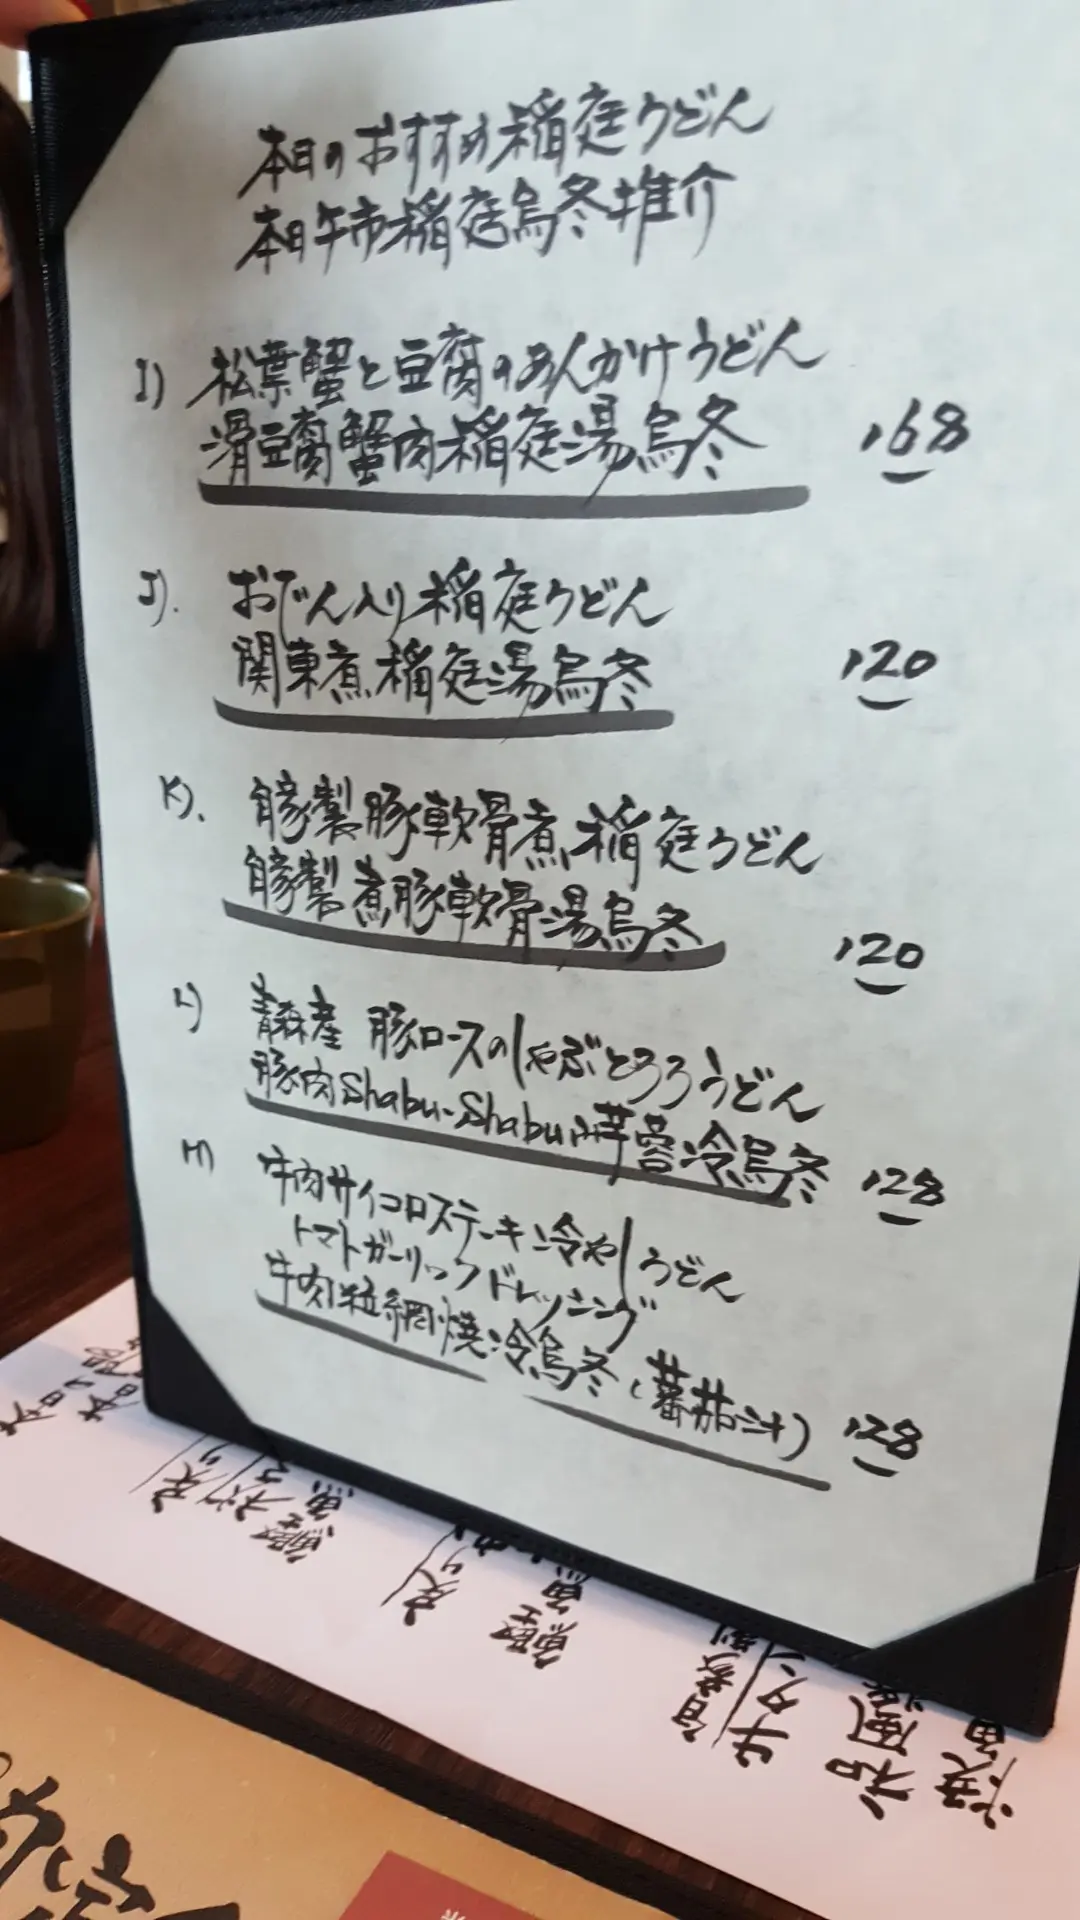 本日のおすすめ稲庭うどん
本日午市稲庭烏冬推介
I) 松葉蟹と豆腐のあんかけうどん
滑豆腐蟹肉稲庭湯烏冬 168
J). おでん入り稲庭うどん
関東煮稲庭湯烏冬 120
K). 自家製豚軟骨煮稲庭うどん
自家製煮豚軟骨湯烏冬 120
L) 青森産 豚ロースのしゃぶとろろうどん
豚肉Shabu-Shabu山芋蓉冷烏冬 128
M) 牛肉サイコロステーキ冷やしうどん
トマトガーリックドレッシング
牛肉粒網焼冷烏冬(蕃茄汁) 128